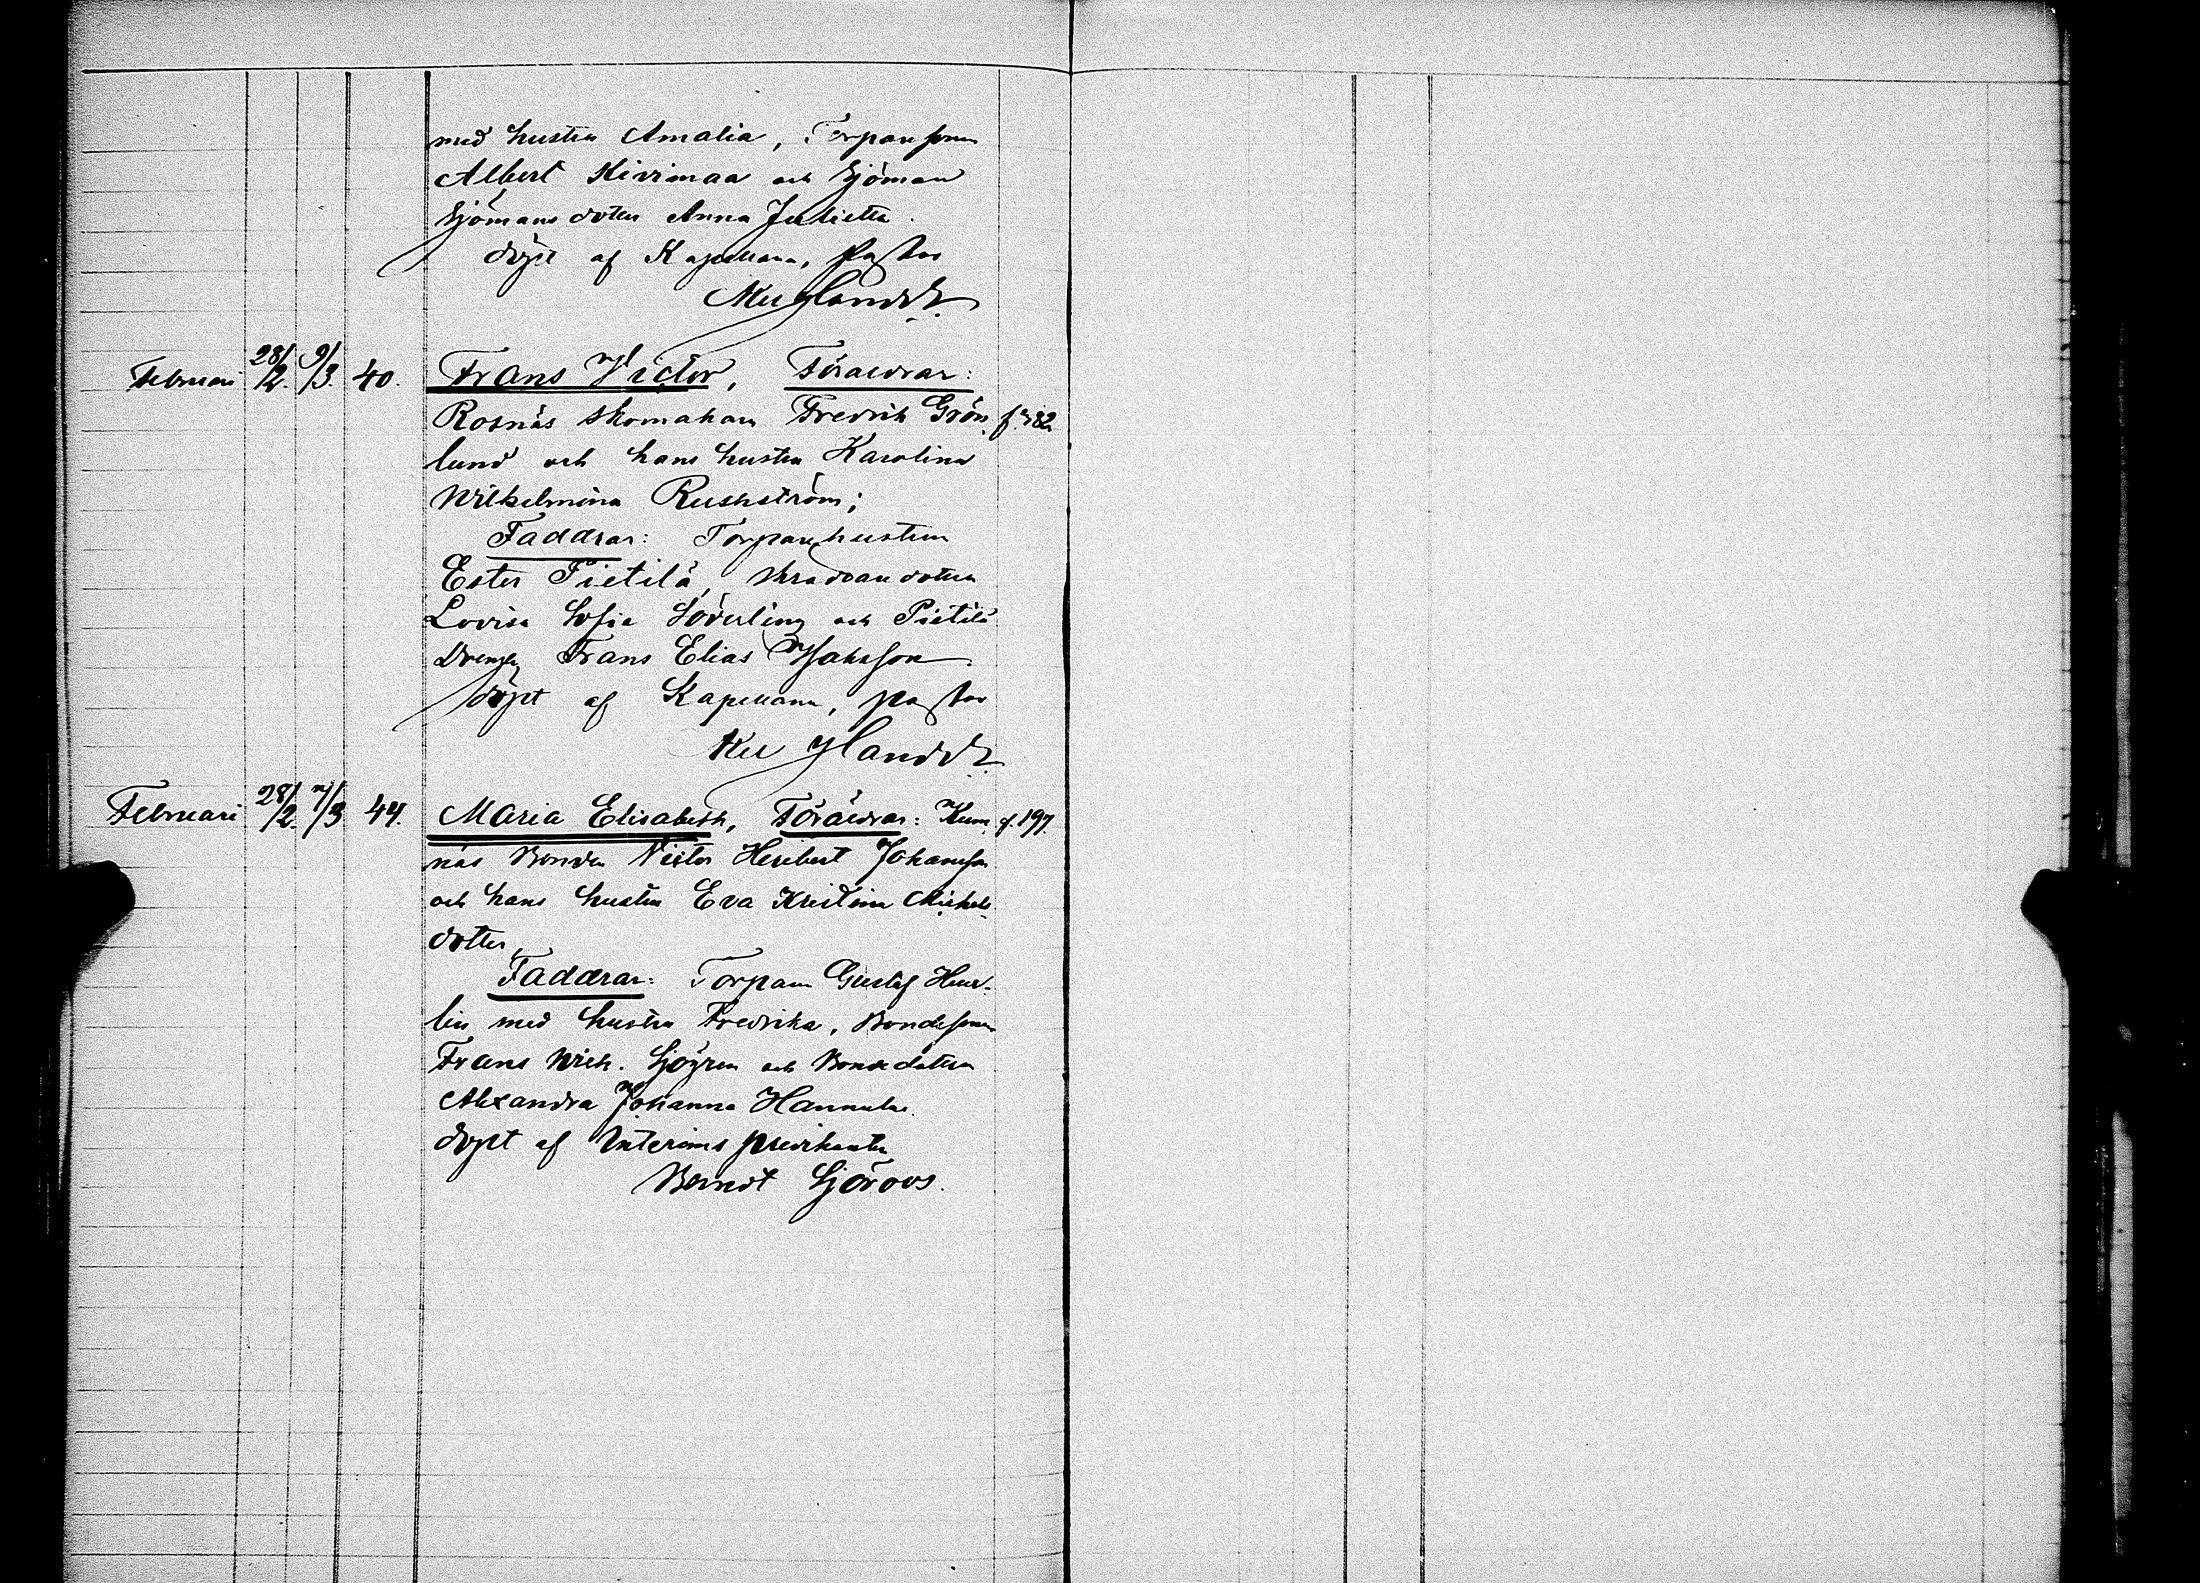 med hustru Amalia, Torpare sonen
Albert Kivimaa och Sjöman
Sjömans dotter Anna Julietta.
döpt af Kapellanen, pastor
Februari 28/2. 9/3. 40. Frans Victor, Föräldrar:
Rosnäs skomakaren Fredrik Grön- f. 382
lund och hans hustru Karolina
Wilhelmina Ruskström;
Faddrar: Torpare hustrun
Ester Pietilä, skräddare dottern
Lovisa Sofia Söderling och Pietilä
Drengen Frans Elias Isaksson.
döpt af Kapellanen, pastor
Februari 28/2. 7/3 44. Maria Elisabeth, Föräldrar: Kum- f. 197
näs Bonden Victor Heribert Johansson
och hans hustru Eva Kristina Michels-
dotter,
Faddrar: Torparn Gustaf Hener-
lin med hustru Fredrika, Bondesonen
Frans Wilh. Sjögren och Bondedottern
Alexandra Johanna Hannula.
döpt af Interims predikanten
Berndt Sjöroos.